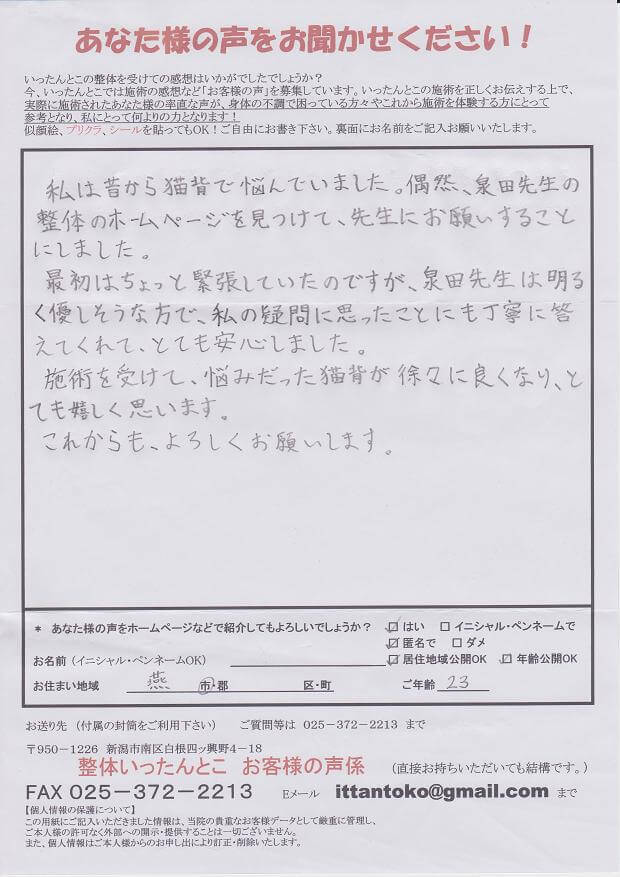 あなた様の声をお聞かせください!
いったんとこの整体を受けての感想はいかがでしたでしょうか?
今、いったんとこでは施術の感想など「お客様の声」を募集しています。いったんとこの施術を正しくお伝えする上で、
実際に施術されたあなた様の率直な声が、身体の不調で困っている方々やこれから施術を体験する方にとって
参考となり、私にとって何よりの力となります!
似顔絵、プリクラ、シールを貼ってもOK!ご自由にお書き下さい。裏面にお名前をご記入お願いいたします。
私は昔から猫背で悩んでいました。偶然、泉田先生の
整体のホームページを見つけて、先生にお願いすること
にしました。
最初はちょっと緊張していたのですが、泉田先生は明る
く優しそうな方で、私の疑問に思ったことにも丁寧に答
えてくれて、とても安心しました。
施術を受けて、悩みだった猫背が徐々に良くなり、と
ても嬉しく思います。
これからも、よろしくお願いします。
* あなた様の声をホームページなどで紹介してもよろしいでしょうか? ☑はい □イニシャル・ペンネームで
☑匿名で □ダメ
お名前(イニシャル・ペンネームOK) ☑居住地域公開OK ☑年齢公開OK
お住まい地域 燕 市・郡 区・町 ご年齢 23
お送り先 (付属の封筒をご利用下さい) ご質問等は 025-372-2213 まで
〒950-1226 新潟市南区白根四ッ興野4-18
整体いったんとこ お客様の声係 (直接お持ちいただいても結構です。)
FAX 025-372-2213 Eメール ittantoko@gmail.com まで
【個人情報の保護について】
この用紙にご記入いただきました情報は、当院の貴重なお客様データとして厳重に管理し、
ご本人様の許可なく外部への開示・提供することは一切ございません。
また、個人情報はご本人様からのお申し出により訂正・削除いたします。